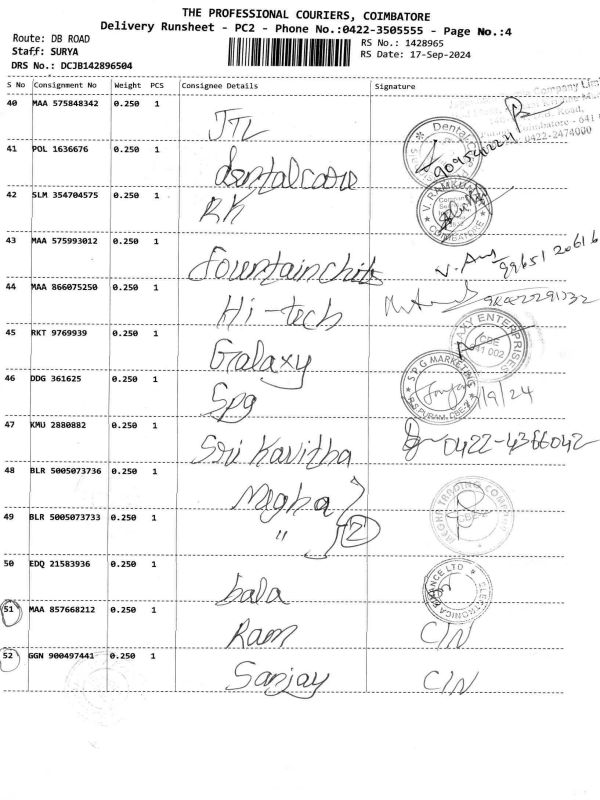 THE PROFESSIONAL COURIERS, COIMBATORE
Delivery Runsheet - PC2 - Phone No.:0422-3505555 - Page No.:4
Route: DB ROAD
Staff: SURYA
DRS No.: DCJB142896504
RS No.: 1428965
RS Date: 17-Sep-2024
S No Consignment No Weight PCS Consignee Details Signature
40 MAA 575848342 0.250 1 JTL
41 POL 1636676 0.250 1 dentalcare
42 SLM 354704575 0.250 1 RK
43 MAA 575993012 0.250 1 fountainchits
44 MAA 866075250 0.250 1 Hi-tech
45 RKT 9769939 0.250 1 Galaxy
46 DDG 361625 0.250 1 Spg
47 KMU 2880882 0.250 1 Sri Kavitha 0422-4366042
48 BLR 5005073736 0.250 1 Megha
49 BLR 5005073733 0.250 1 " 2
50 EDQ 21583936 0.250 1 bala
51 MAA 857668212 0.250 1 Ram C/N
52 GGN 900497441 0.250 1 Sanjay C/N
Company Limi
Road,
Coimbatore - 641
0422-2474000
Dental
V. RAMKU
COIMBATORE
99651 20616
AXY ENTERPRISES
CBE
41 002
SPG MARKETING
R.S PURAM, CBE-2
/9/24
MEGHA TRADING COMPANY
CBE-2
FINANCE LTD
ELECTRONICA